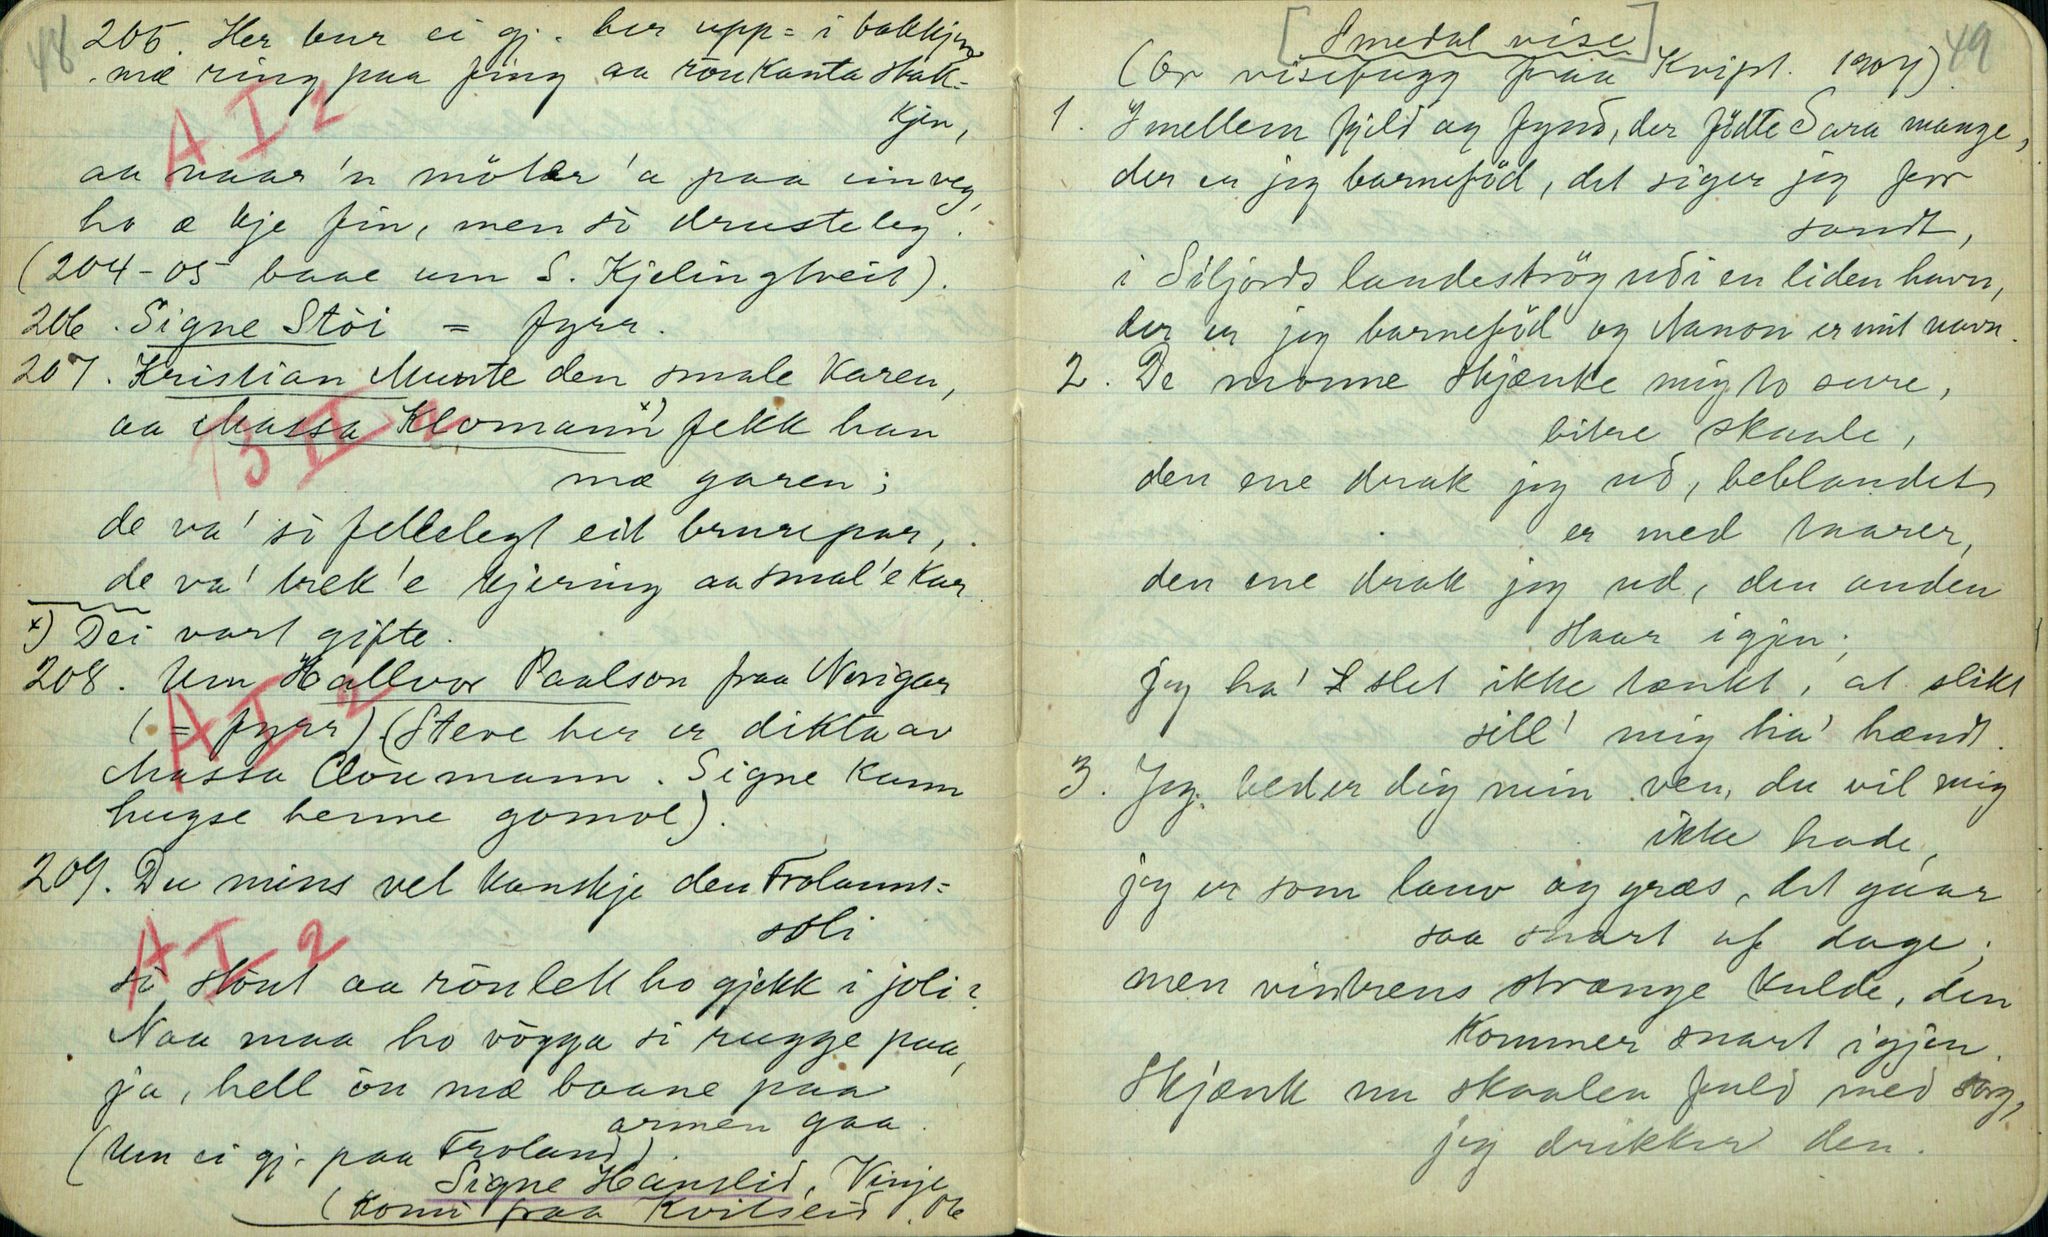 48
205. Her bur ei gj. her upp= i bakkjen
mæ ring paa fing aa röukanta stak=
kjen,
A I 2
aa naar 'n möter 'a paa ein veg,
ho æ kje fin, men så drusteleg.
(204-05 baae um S. Kjelingtveit).
206. Signe Stöi = fyrr.
207. Kristian Munte den smale karen,
aa Massa Klomann x) fekk han
B II 2
mæ garen;
de va' så fellelegt eit brurepar,
de va' brek'e kjering aa smal'e kar
x) Dei vart gifte.
208. Um Hallvor Paalson fraa Norigar
A I 2
(= fyrr) (Steve her er dikta av
Massa Cloumann. Signe kann
hugse henne gomol).
209. Du mins vel kanskje den Frolanns=
soli
A I 2
så stöut aa röulett ho gjekk i joli?
Naa maa ho vögga så rugge paa,
ja, hell ön mæ baane paa
armen gaa.
(Um ei gj. paa Froland).
Signe Hanslid, Vinje
(komi fraa Kvitseid. 06
49
[Smedal vise]
(Or visebugg fraa Kvipt. 1907)
1. Imellem fjeld og fynd, der fødte Sara mange,
der er jeg barnefød, det siger jeg for
sandt,
i Siljords landestrøg udi en liden havn,
der er jeg barnefød og Nanon er mit navn.
2. De monne skjænke mig to sure,
bitre skaale,
den ene drak jeg ud, beblandet
er med taarer,
den ene drak jeg ud, den anden
staar igjen;
jeg ha' slet ikke tænkt, at slikt
sill' mig ha' hændt.
3. Jeg beder dig min ven, du vil mig
ikke hade,
jeg er som lauv og græs, det gaar
saa snart af dage;
men vintrens strænge kulde, den
kommer snart igjen.
Skjænk nu skaalen fuld med sorg,
jeg drikker den.